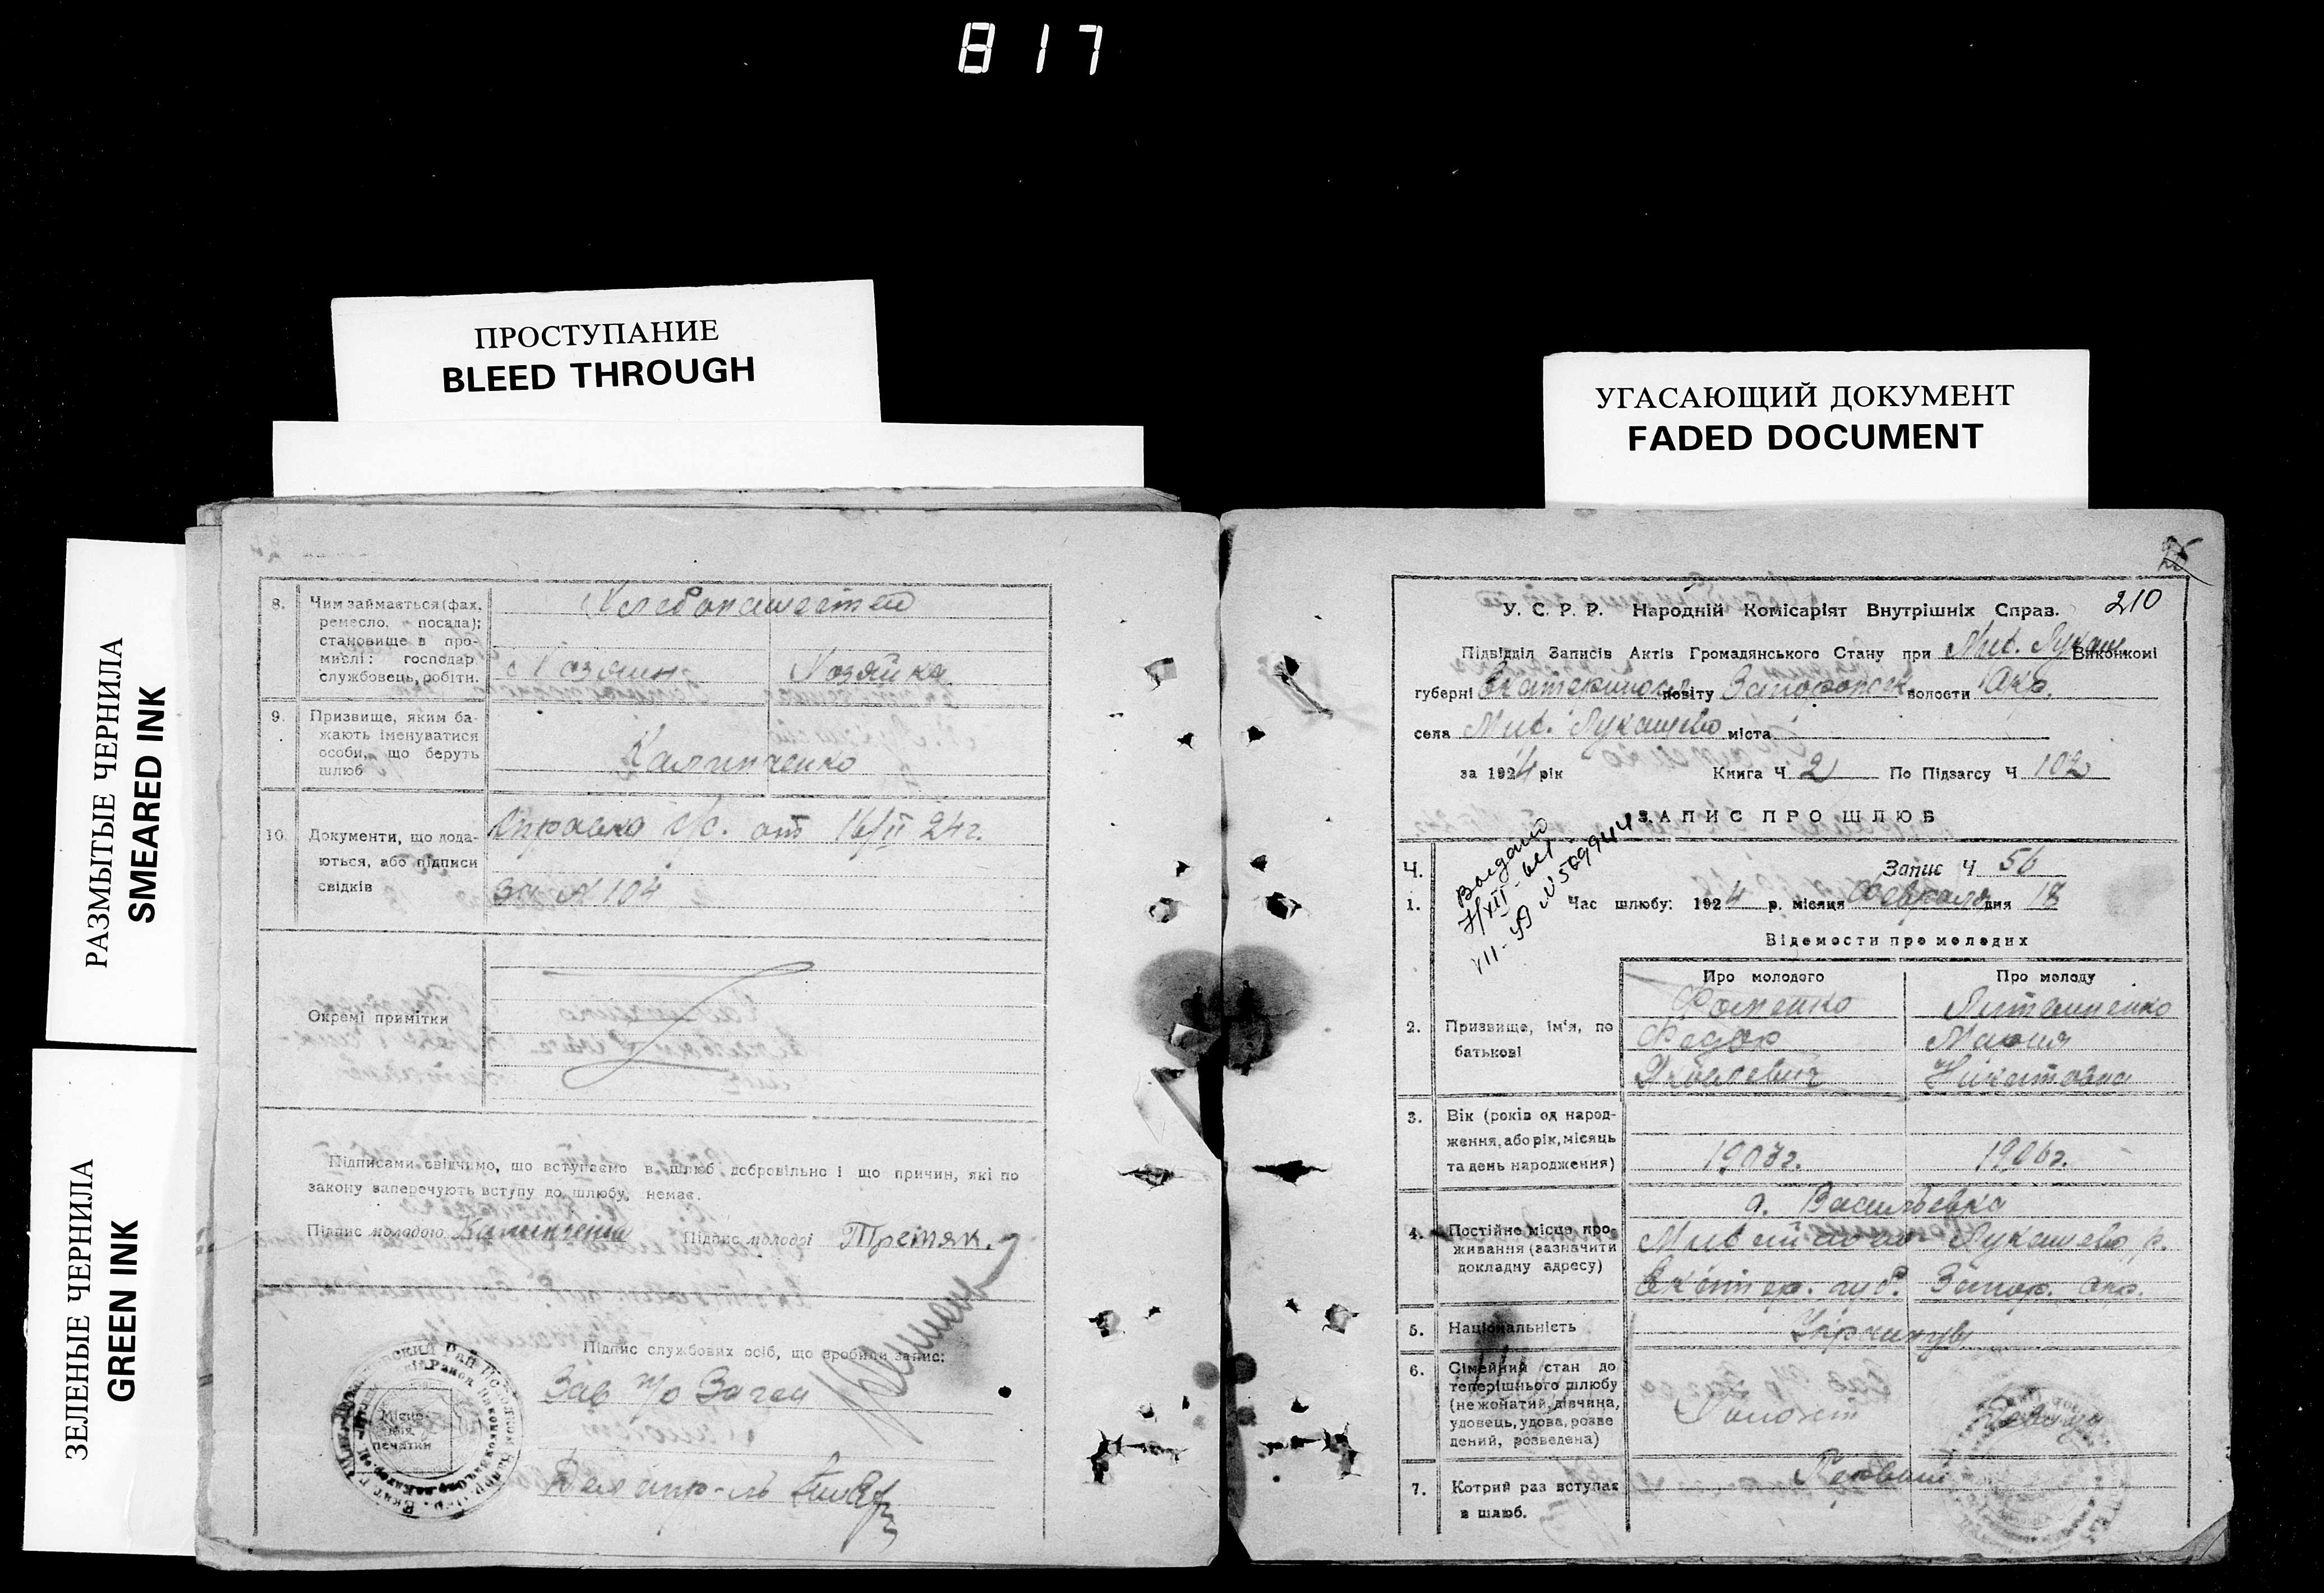 817
ПРОСТУПАНИЕ
BLEED THROUGH
УГАСАЮЩИЙ ДОКУМЕНТ
FADED DOCUMENT
РАЗМЫТЫЕ ЧЕРНИЛА
SMEARED INK
ЗЕЛЕНЫЕ ЧЕРНИЛА
GREEN INK
8. Чим займається (фах,
ремесло, посада);
становище в про-
мислі: господар
службовець, робітн.
Хозяин Хозяйка
9. Призвище, яким ба-
жають іменуватися
особи, що беруть
шлюб
Калиниченко
10. Документи, що дода-
ються, або підписи
свідків
Справка с/с. от 16/II 24г.
за N 104
Окремі примітки
Підписами свідчимо, що вступаємо в шлюб добровільно і що причин, які по
закону заперечують вступу до шлюбу, немає.
Підпис молодого Підпис молодої Третяк.
Підпис службових осіб, що зробили запис:
Зав п/о Загса
Місце
для
печатки
25
210
У. С. Р. Р. Народній Комісаріят Внутрішніх Справ.
Підвідділ Записів Актів Громадянського Стану при Мих. Лукаш. Виконкомі
губерні Екатеринослав повіту Запорожск волости Окр.
села Мих. Лукашево міста
за 1924 рік Книга Ч 2 По Підзагсу Ч 102
ЗАПИС ПРО ШЛЮБ
Ч. Запис Ч 56
1. Час шлюбу: 1924 р. місяця Февраля дня 18
Відомости про молодих
Про молодого Про молоду
2. Призвище, ім'я, по
батькові
Фоменко
Федор
Яковлевич
Литвиненко
Мария
Никитовна
3. Вік (років од народ-
ження, або рік, місяць
та день народження)
1903г. 1906г.
4. Постійне місце про-
живання (зазначити
докладну адресу)
д. Васильевка
Михайлово-Лукашево р.
Екатер. губ. Запор. окр.
5. Національність
Украинцы
6. Сімейний стан до
теперішнього шлюбу
(не жонатий, дівчина,
удовець, удова, розве
дений, розведена)
Холост Девица
7. Котрий раз вступає
в шлюб.
Первый